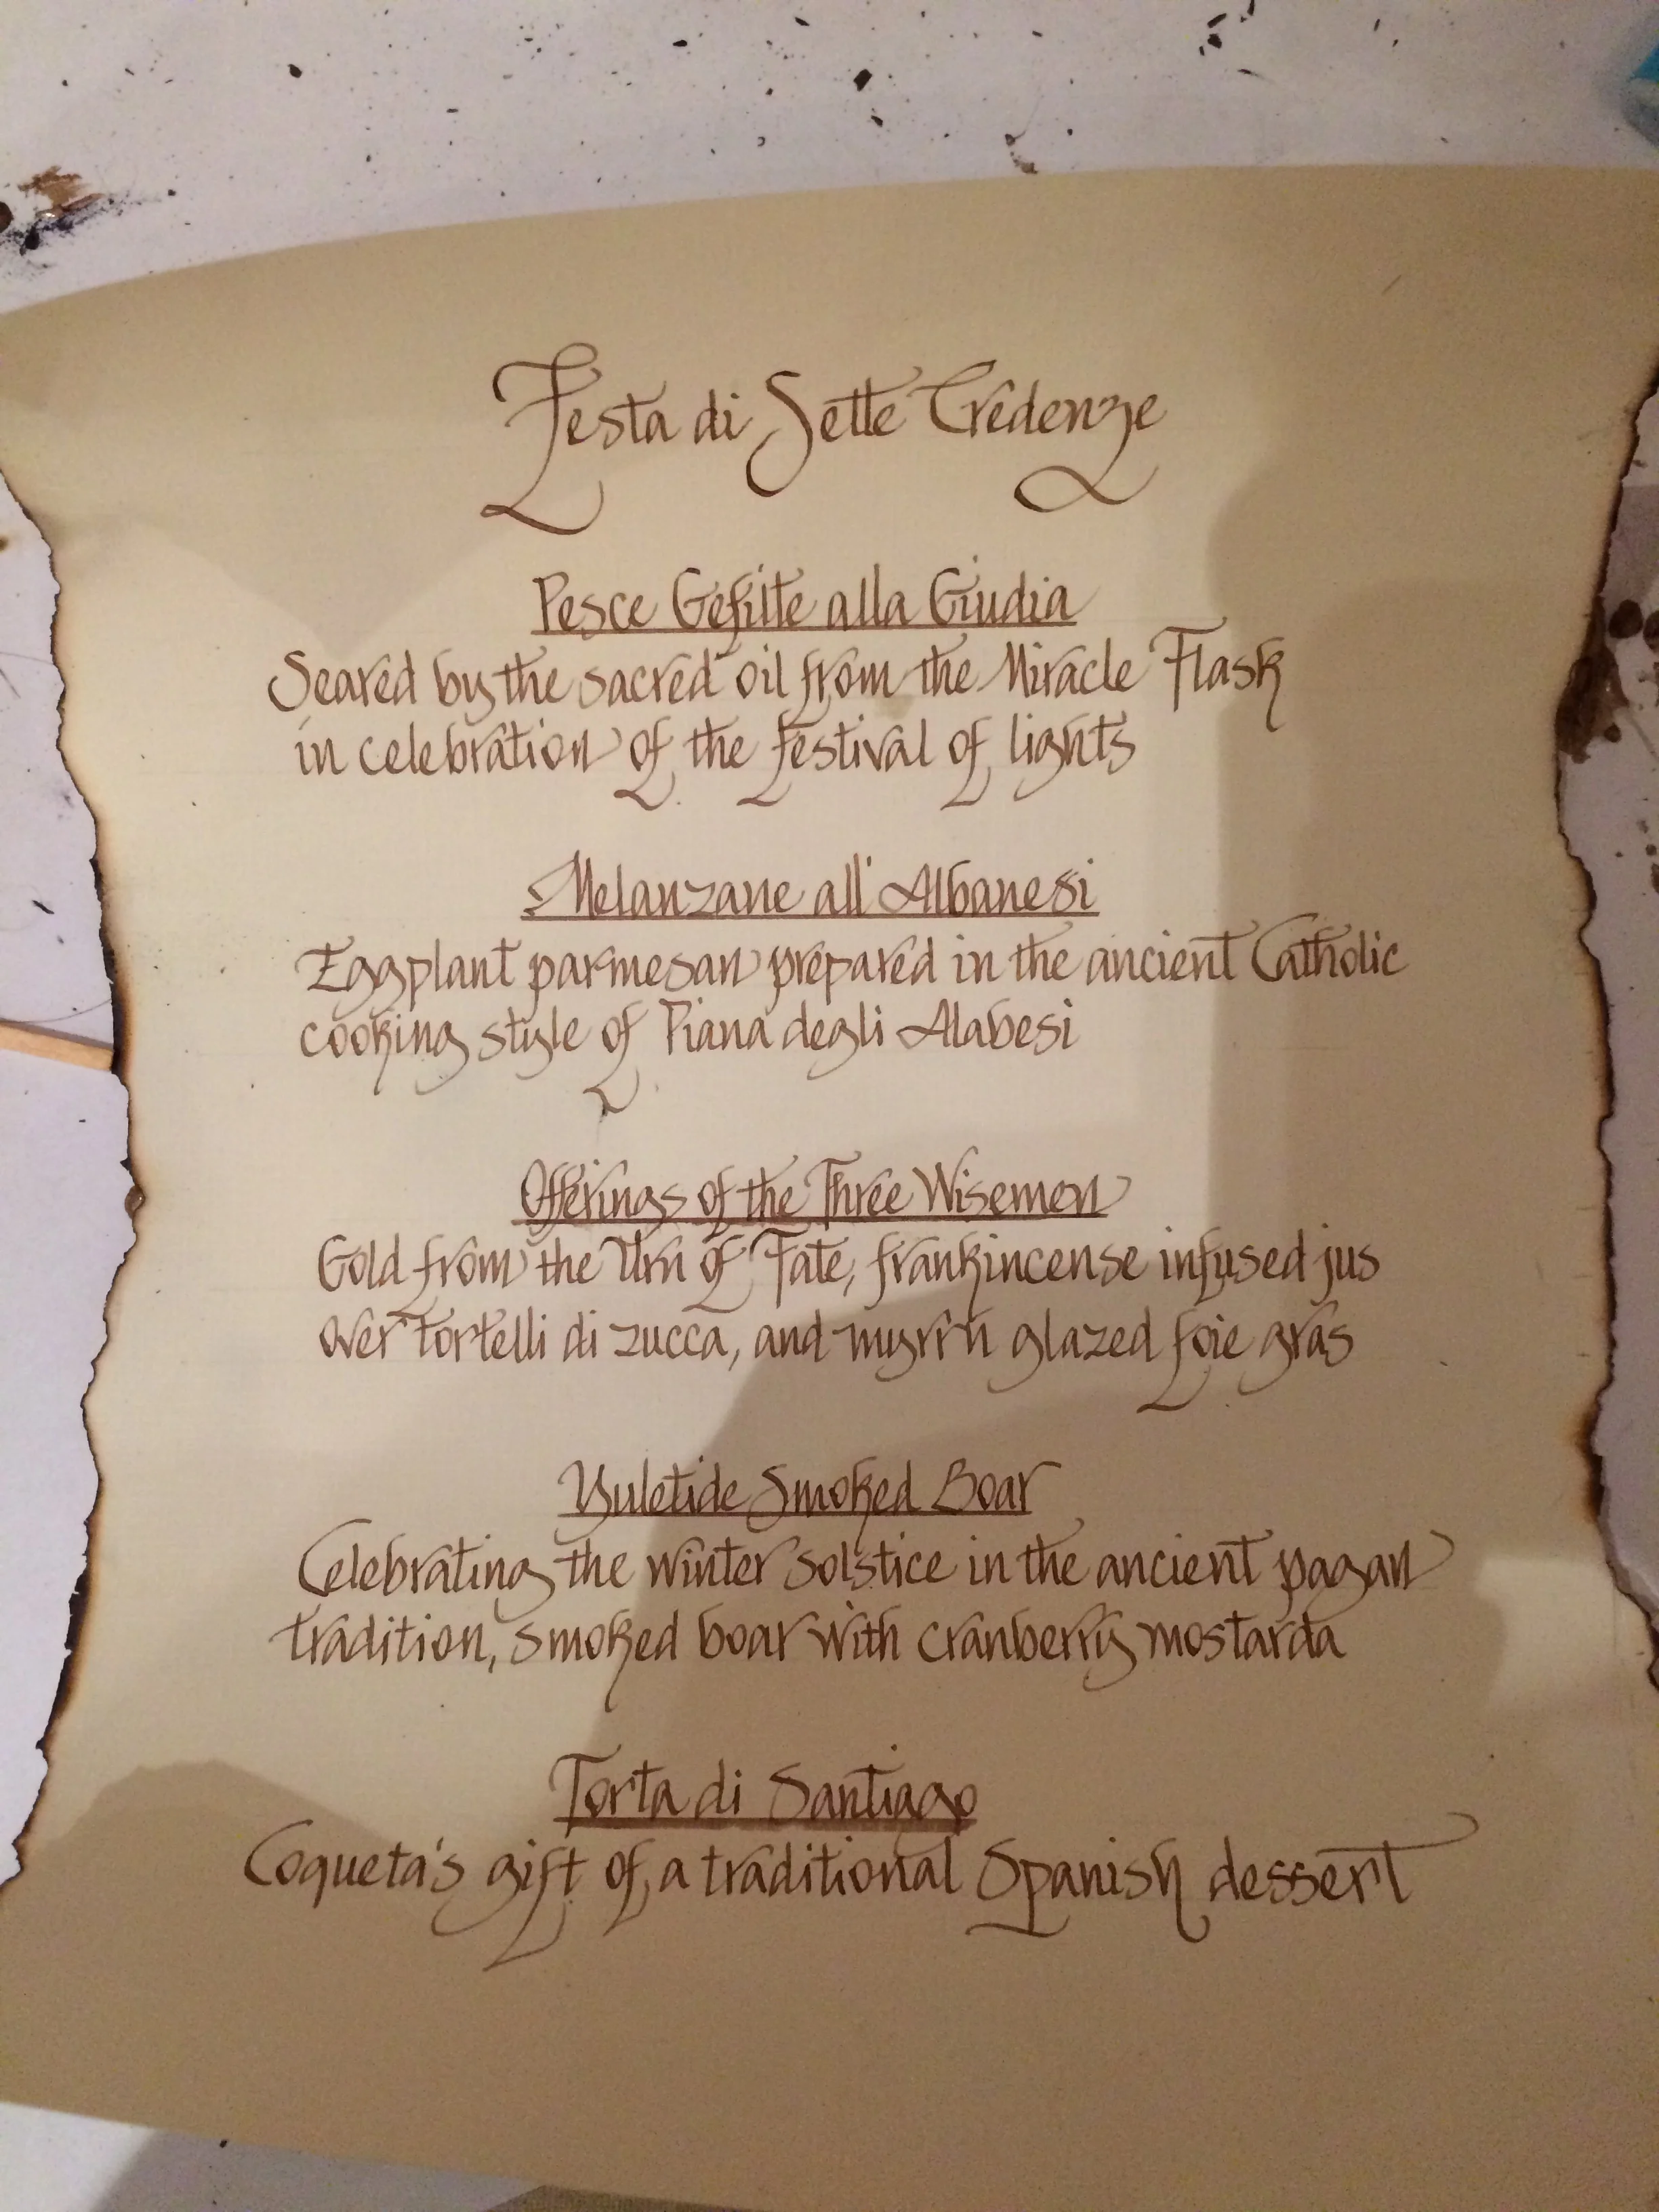 Festa di Sette Credenze
Pesce Gefilte alla Giudia
Seared by the sacred oil from the Miracle Flask
in celebration of the festival of lights
Melanzane all' Albanesi
Eggplant parmesan prepared in the ancient Catholic
cooking style of Piana degli Alabesi
Offerings of the Three Wisemen
Gold from the Urn of Fate, frankincense infused jus
over tortelli di zucca, and myrrh glazed foie gras
Yuletide Smoked Boar
Celebrating the winter solstice in the ancient pagan
tradition, smoked boar with cranberry mostarda
Torta di Santiago
Coqueta's gift of a traditional Spanish dessert